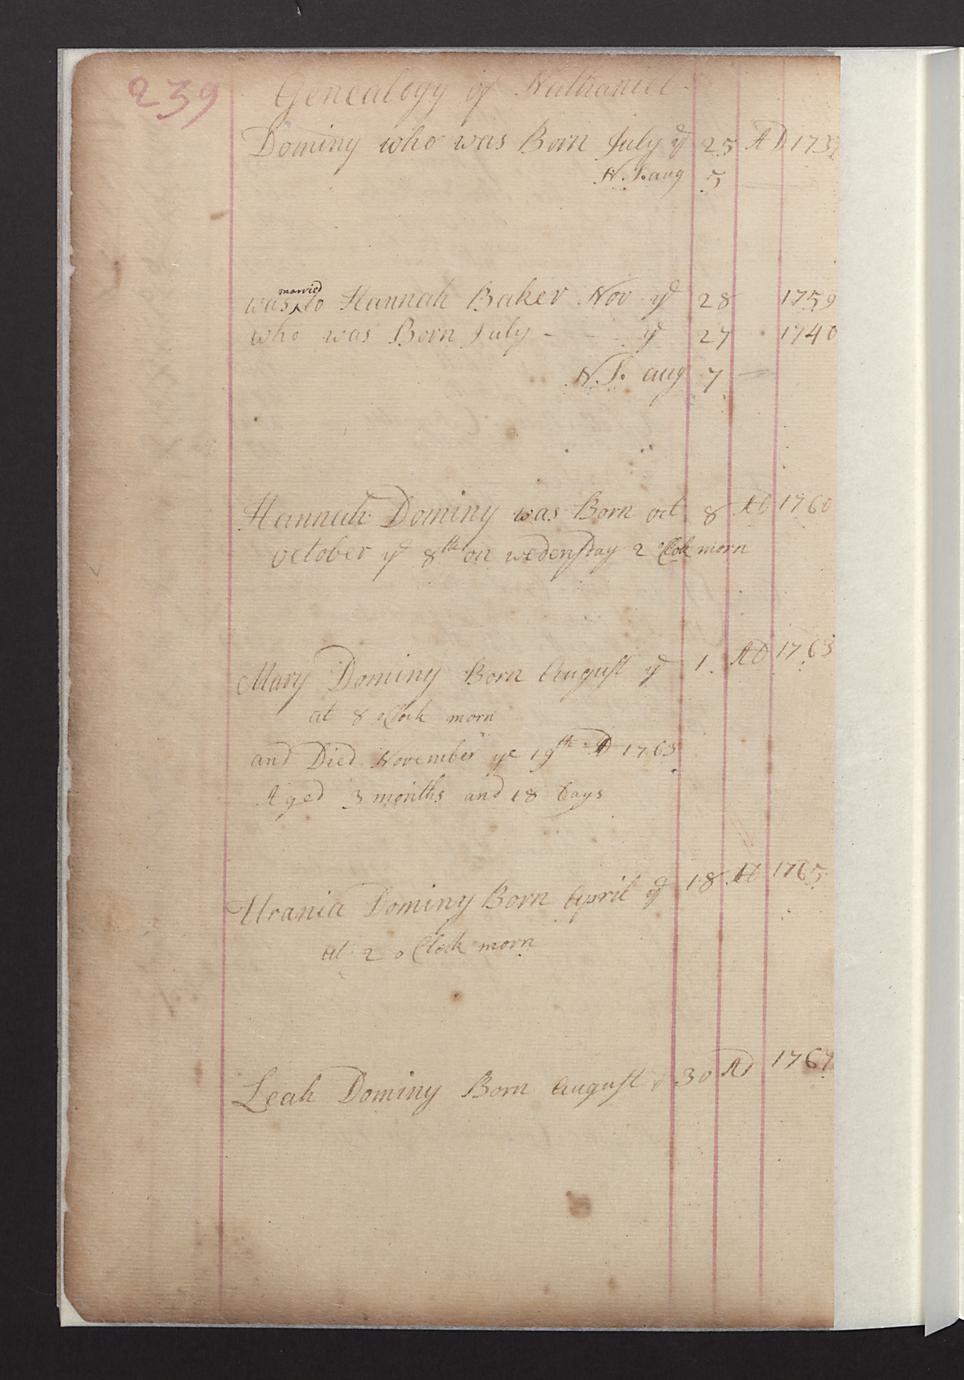 239
Genealogy of Nathaniel
Dominy who was Born July ye 25 AD 1737
N.S. aug 5
married
was ‸ to Hannah Baker Nov ye 28 1759
who was Born July - - ye 27 1740
N.S. aug 7
Hannah Dominy was Born oct 8 AD 1760
october ye 8th on wedensday 2 oClok morn
Mary Dominy Born August ye 1. AD 1763
at 8 oClock morn
and Died November ye 19th AD 1763
Aged 3 months and 18 Days
Urania Dominy Born April ye 18 AD 1765
at 2 oClock morn
Leah Dominy Born August 30 AD 1767